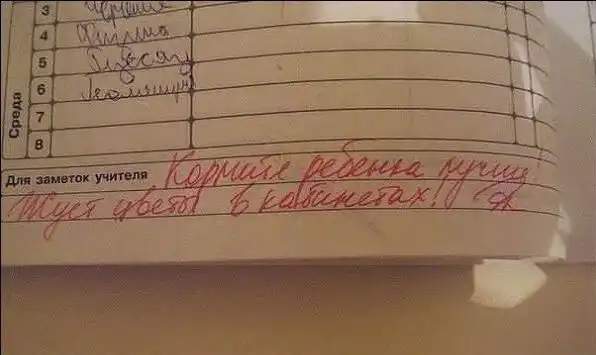 3 Черчение
4 Физика
5 Русский
6 Геометрия
Среда
7
8
Для заметок учителя Кормите ребенка лучше!
Жует цветы в кабинетах!